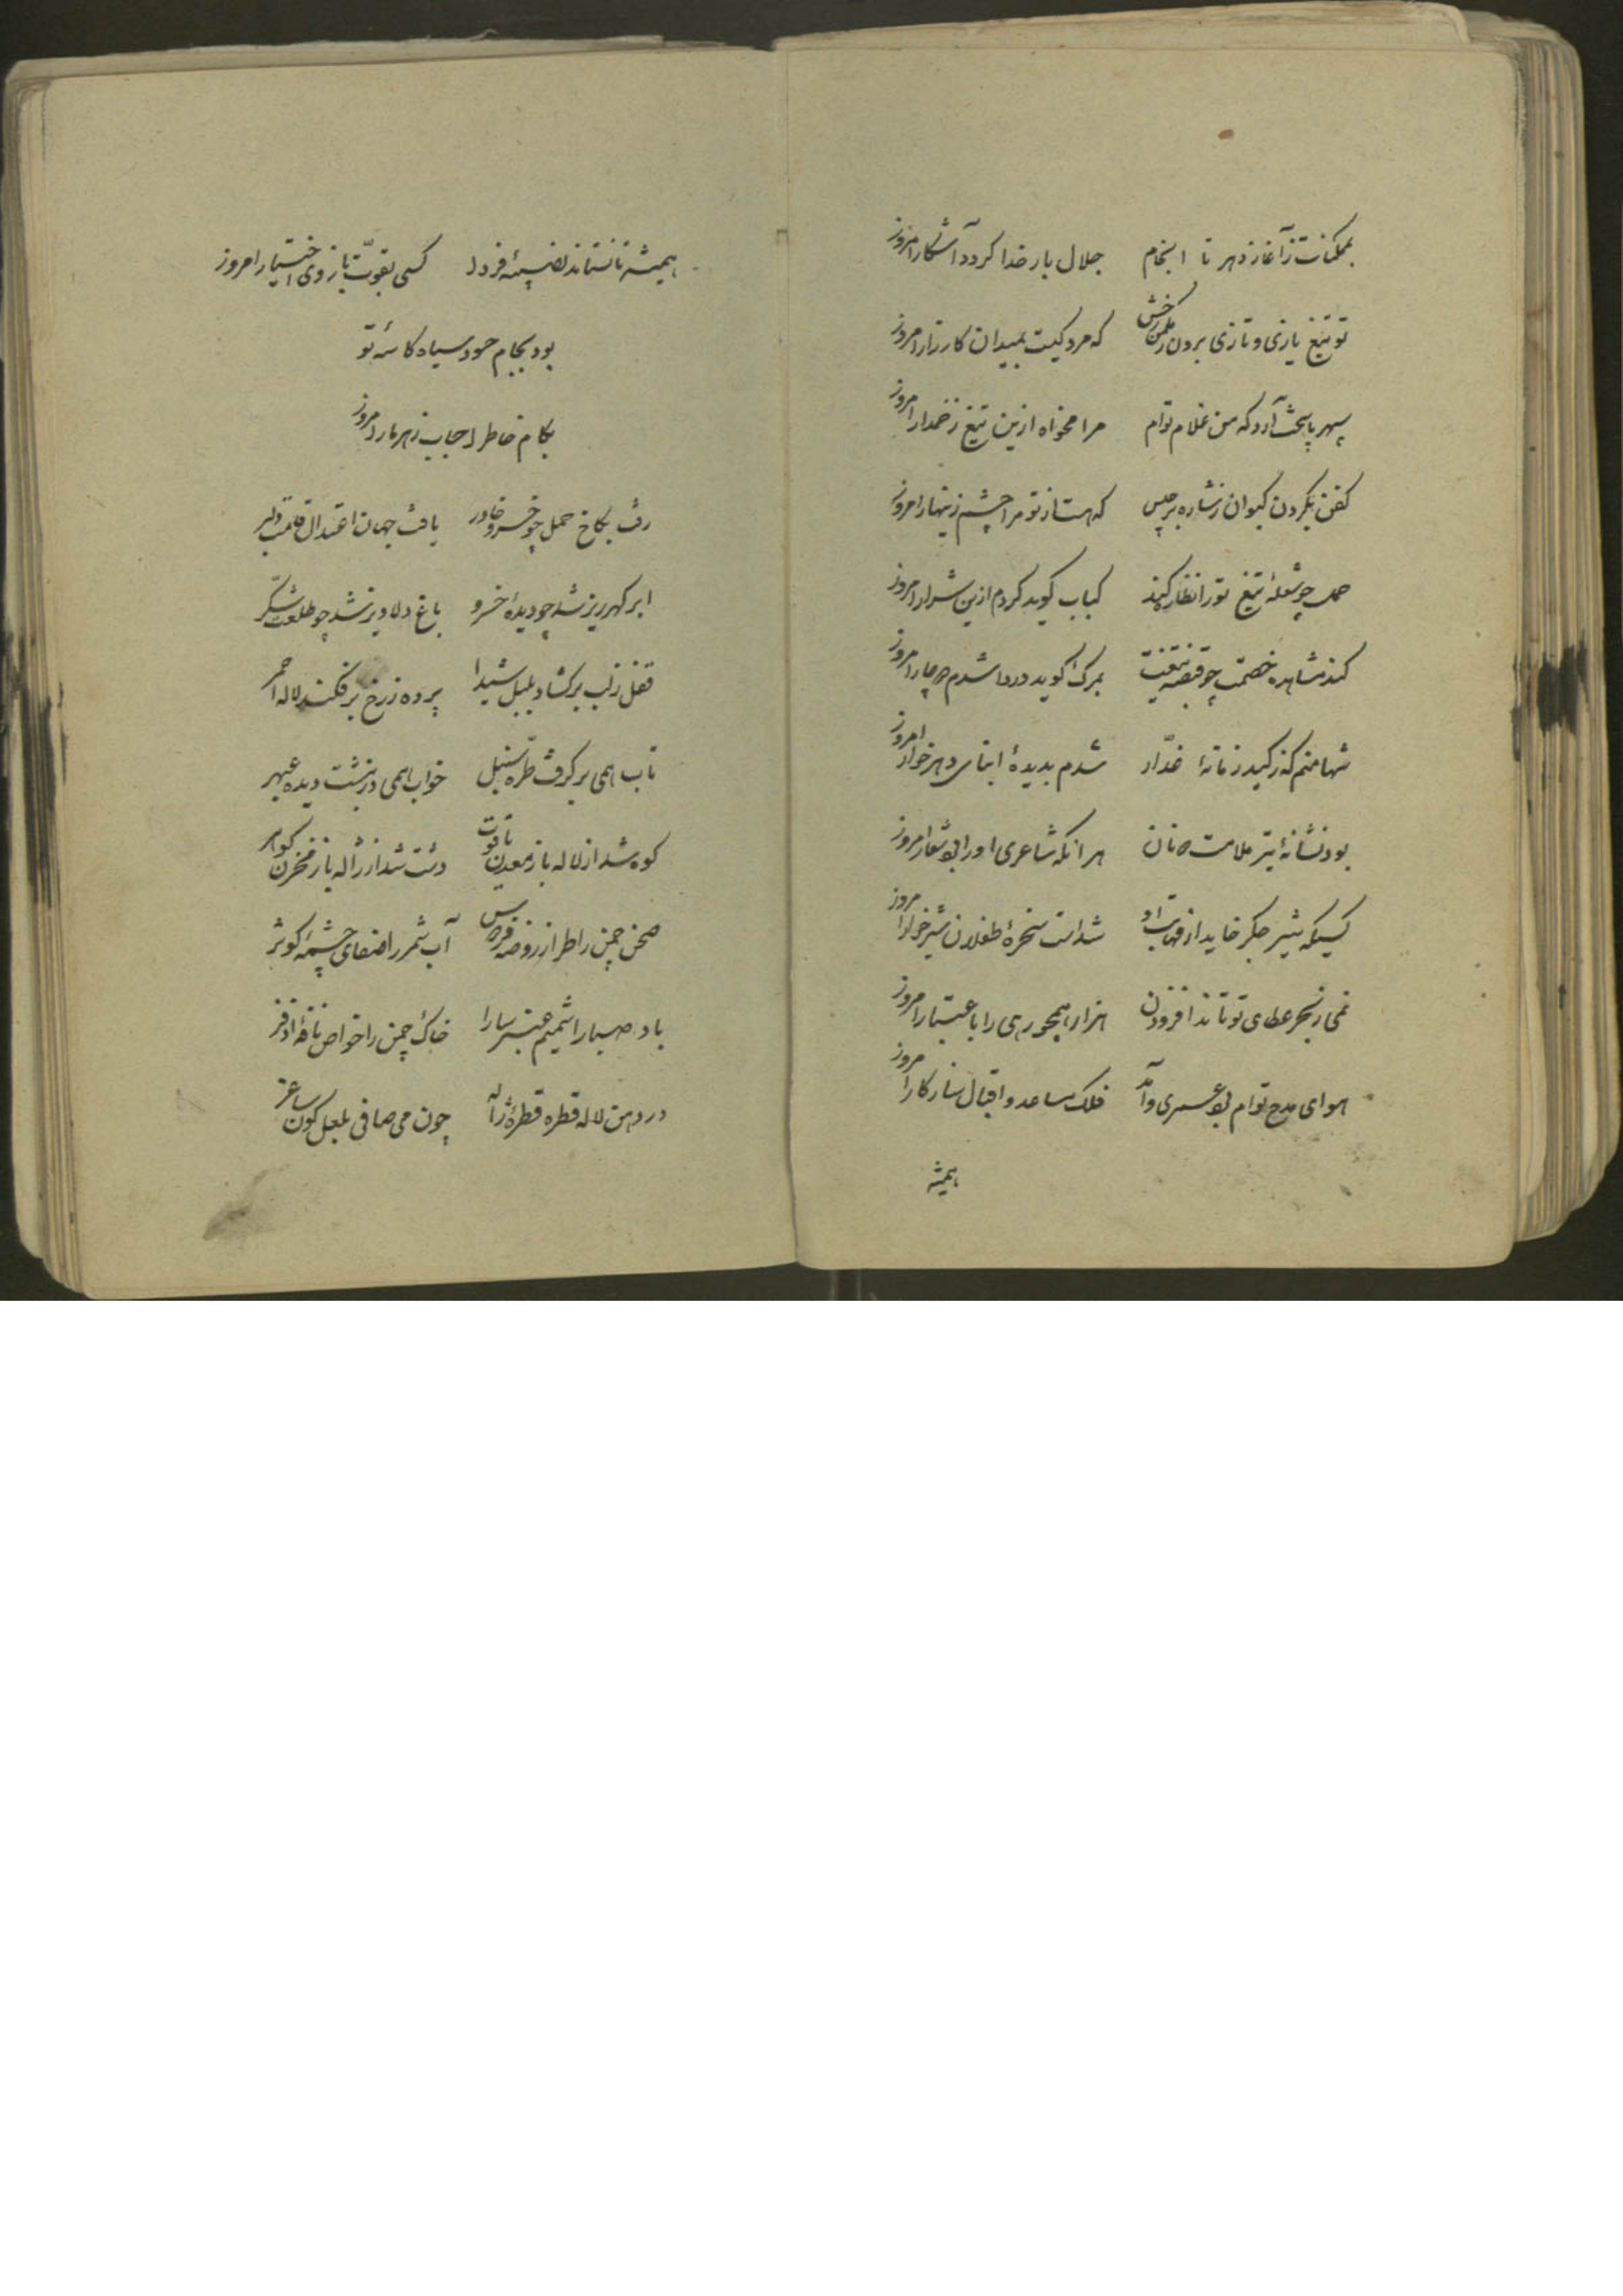 بممکنات ز آغاز دهر تا انجام جلال بار خدا کردد آشکار امروز
تو تیغ یازی و تازی برون رخش که مرد کیست بمیدان کارزار امروز
سپهر پاسخت آرد که من غلام توام مرا مخواه ازین تیغ زخمدار امروز
کفن بگردن کیوان ز شاره برجیس که هست از تو مرا چشم زینهار امروز
حمل چو شعلهٔ تیغ تو را نظاره کند کباب کوید کردم ازین شرار امروز
کند مشاهده خصمت چو قبضهٔ تیغت بمرک کوید دردا شدم دچار امروز
شها منم که ز کید زمانهٔ غدّار شدم بدیدهٔ ابنای دهر خوار امروز
بود نشانهٔ تیر ملامت دونان هر انکه شاعری او را بود شعار امروز
کسیکه شیر جکر خاید از مهابت او شداست سخرهٔ طفلان شیر خوار امروز
نمی ز بحر عطای تو تاند افزودن هزار همچو رهی را باعتبار امروز
هوای مدح توام بود عسری و آمد فلک مساعد و اقبال سازکار امروز
همیشه
همیشه تا نستاند نصیبهٔ فردا کسی بقوّت بازوی اختیار امروز
بود بجام حسود سیاه کاسهٔ تو
بکام خاطر احباب زهر مار امروز
رفت بکاخ حمل چو خسرو خاور یافت جهان اعتدال قلب دلبر
ابر کهرریز شد چو دیدهٔ خسرو باغ دلاویز شد چو طلعت شکّر
قفل ز لب برکشاد بلبل شیدا پرده ز رخ برفکند لاله احمر
تاب همی برکرفت طرّه سنبل خواب همی درنشست دیده عبهر
کوه شد از لاله باز معدن یاقوت دشت شد از ژاله باز مخزن کوهر
صحن چمن را طراز روضه فردوس آب شمر را صفای چشمهٔ کوثر
باد صبا را شمیم عنبر سارا خاک چمن را خواص نافهٔ اذفر
در دهن لاله قطره قطرهٔ ژاله چون می صافی بلعل کون ساغر